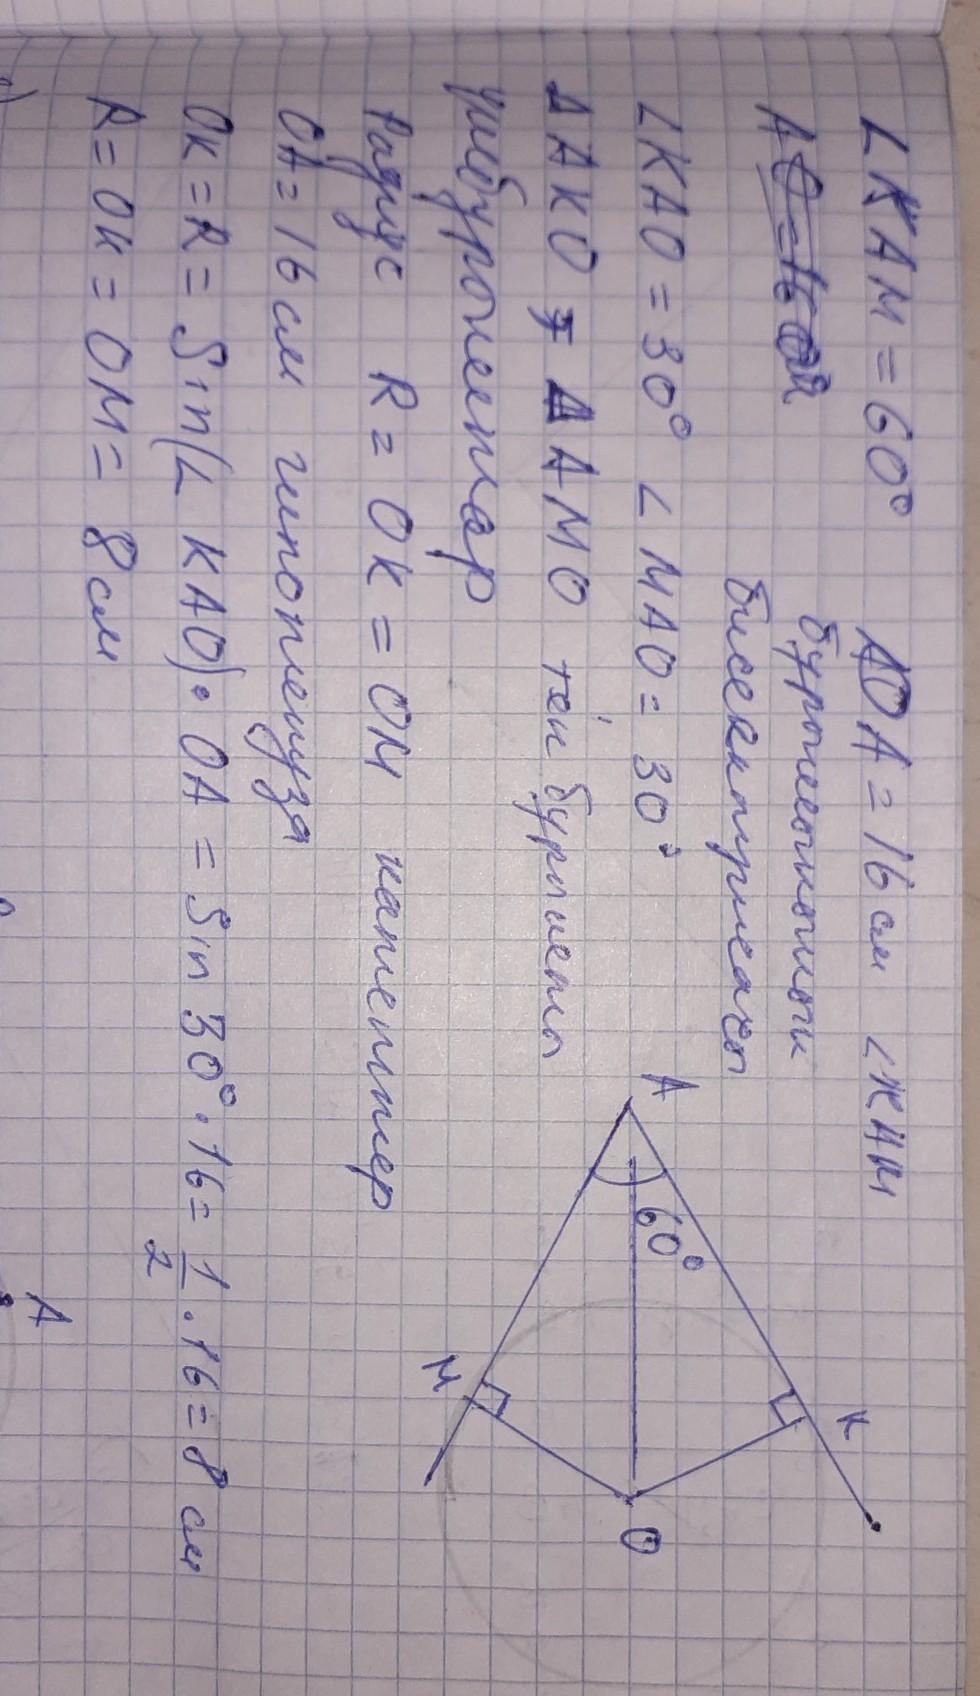 ∠KAM = 60° OA = 16 см ∠KAM
бұрышының
биссектрисасы
∠KAO = 30° ∠MAO = 30°
ΔAKO = ΔAMO тең бұрышты
үшбұрыштар
Радиус R = OK = OM катеттер
OA = 16 см гипотенуза
OK = R = Sin(∠KAO) · OA = Sin 30° · 16 = 1/2 · 16 = 8 см
R = OK = OM = 8 см
A
60°
K
M
O
A